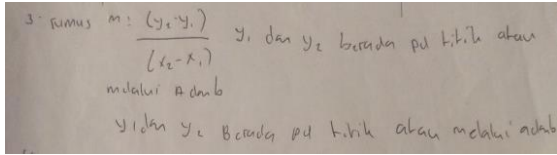 3. rumus m : (y₂-y₁) / (x₂-x₁) y₁ dan y₂ berada pd titik atau
melalui A dan b
y₁ dan y₂ Berada pd titik atau melalui adanb